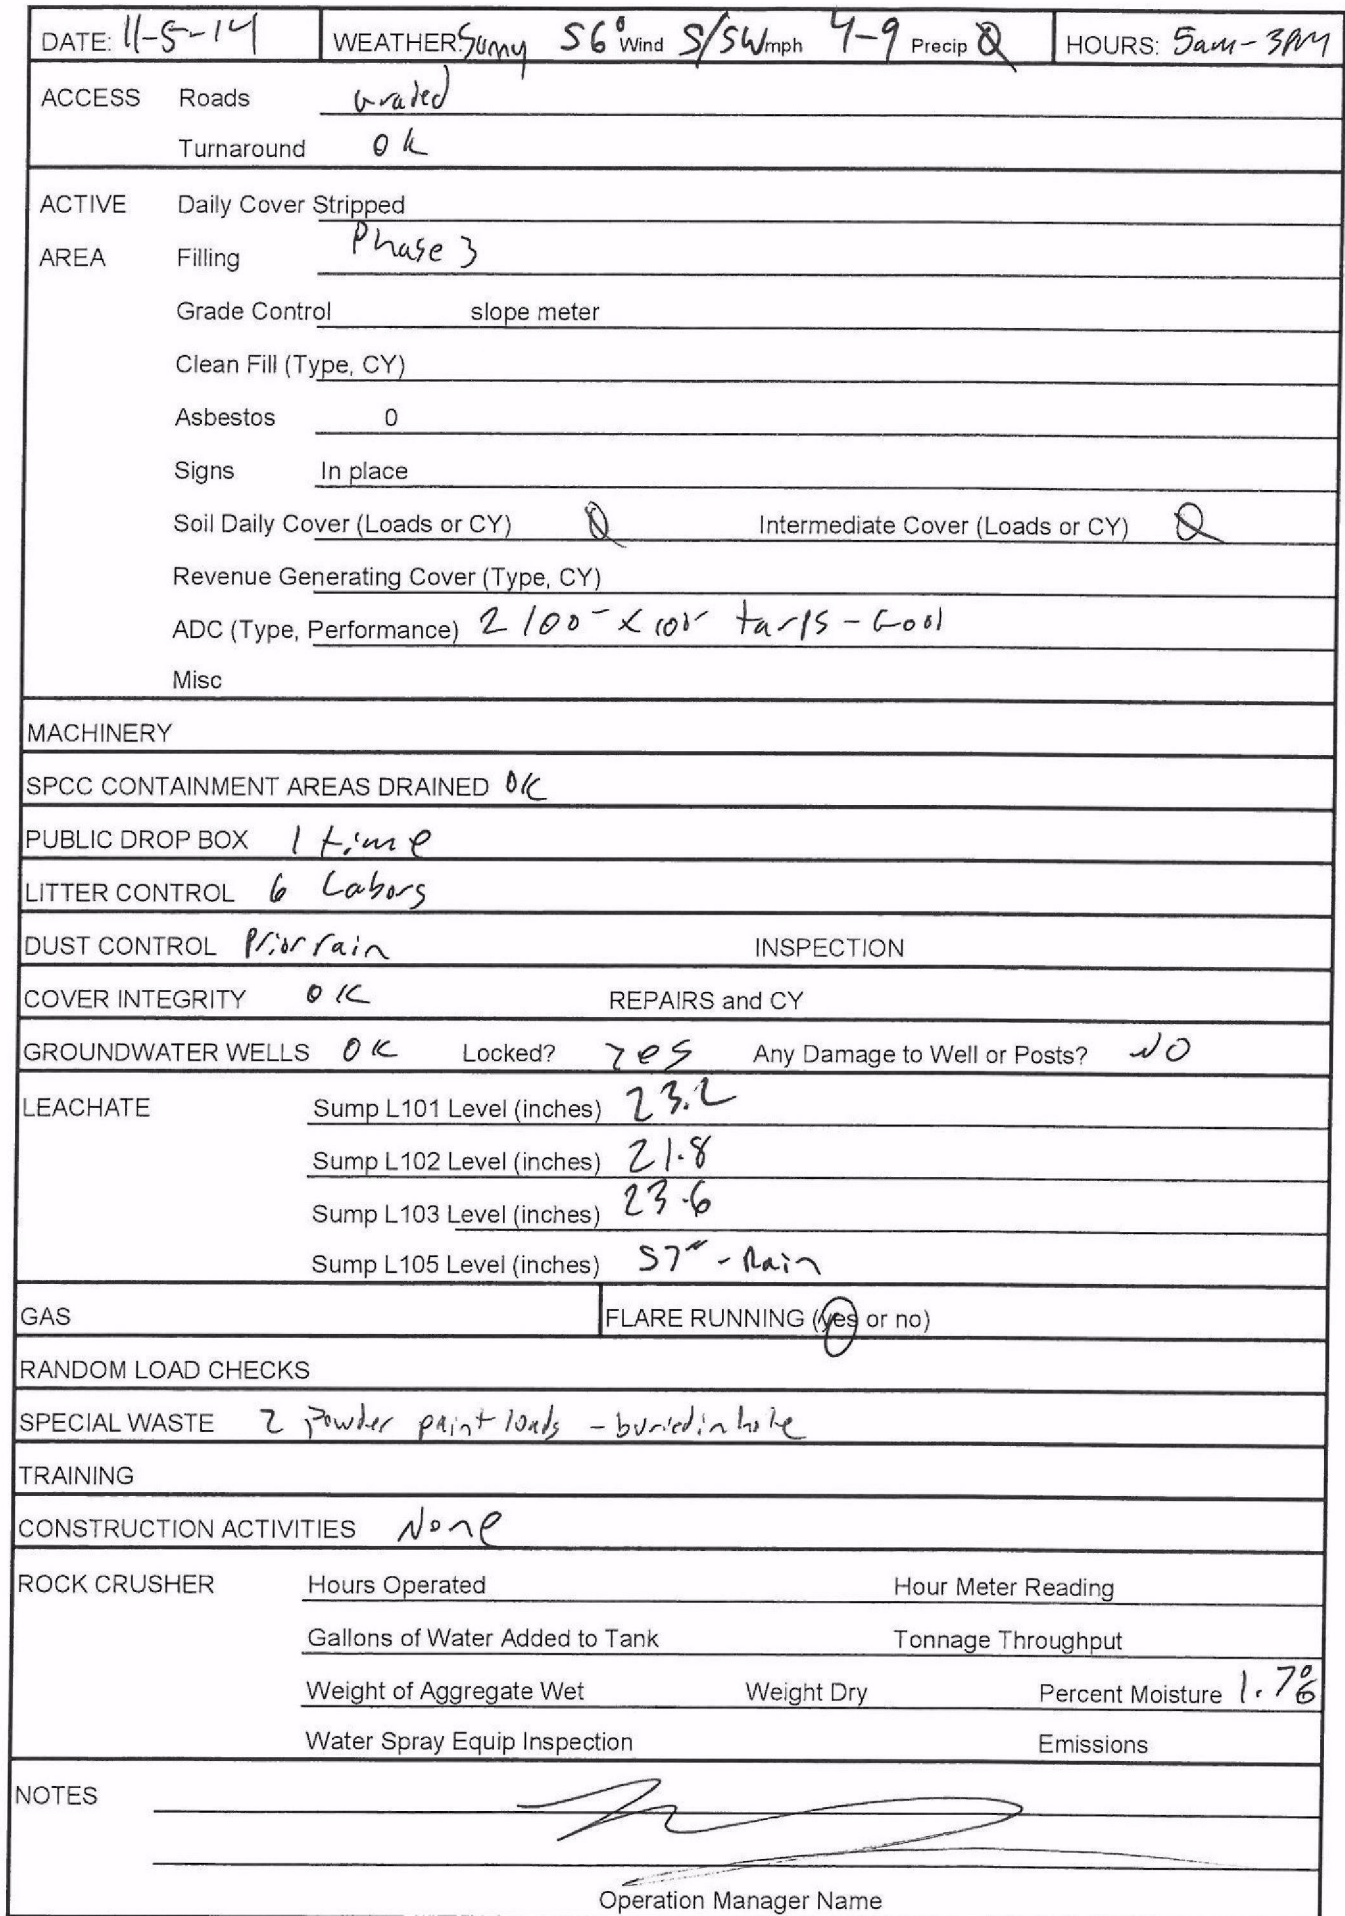 DATE: 11-5-14 WEATHER: Sunny 56° Wind S/SW mph 4-9 Precip 0 HOURS: 5am-3PM
ACCESS Roads Graded
Turnaround OK
ACTIVE Daily Cover Stripped
AREA Filling Phase 3
Grade Control slope meter
Clean Fill (Type, CY)
Asbestos 0
Signs In place
Soil Daily Cover (Loads or CY) 0 Intermediate Cover (Loads or CY) 0
Revenue Generating Cover (Type, CY)
ADC (Type, Performance) 2 100' x 100' tarps - Good
Misc
MACHINERY
SPCC CONTAINMENT AREAS DRAINED OK
PUBLIC DROP BOX 1 time
LITTER CONTROL 6 Labors
DUST CONTROL Prior rain INSPECTION
COVER INTEGRITY OK REPAIRS and CY
GROUNDWATER WELLS OK Locked? yes Any Damage to Well or Posts? NO
LEACHATE Sump L101 Level (inches) 23.2
Sump L102 Level (inches) 21.8
Sump L103 Level (inches) 23.6
Sump L105 Level (inches) 57" - Rain
GAS FLARE RUNNING (yes or no)
RANDOM LOAD CHECKS
SPECIAL WASTE 2 Powder paint loads - buried in hole
TRAINING
CONSTRUCTION ACTIVITIES None
ROCK CRUSHER Hours Operated Hour Meter Reading
Gallons of Water Added to Tank Tonnage Throughput
Weight of Aggregate Wet Weight Dry Percent Moisture 1.7%
Water Spray Equip Inspection Emissions
NOTES
Operation Manager Name